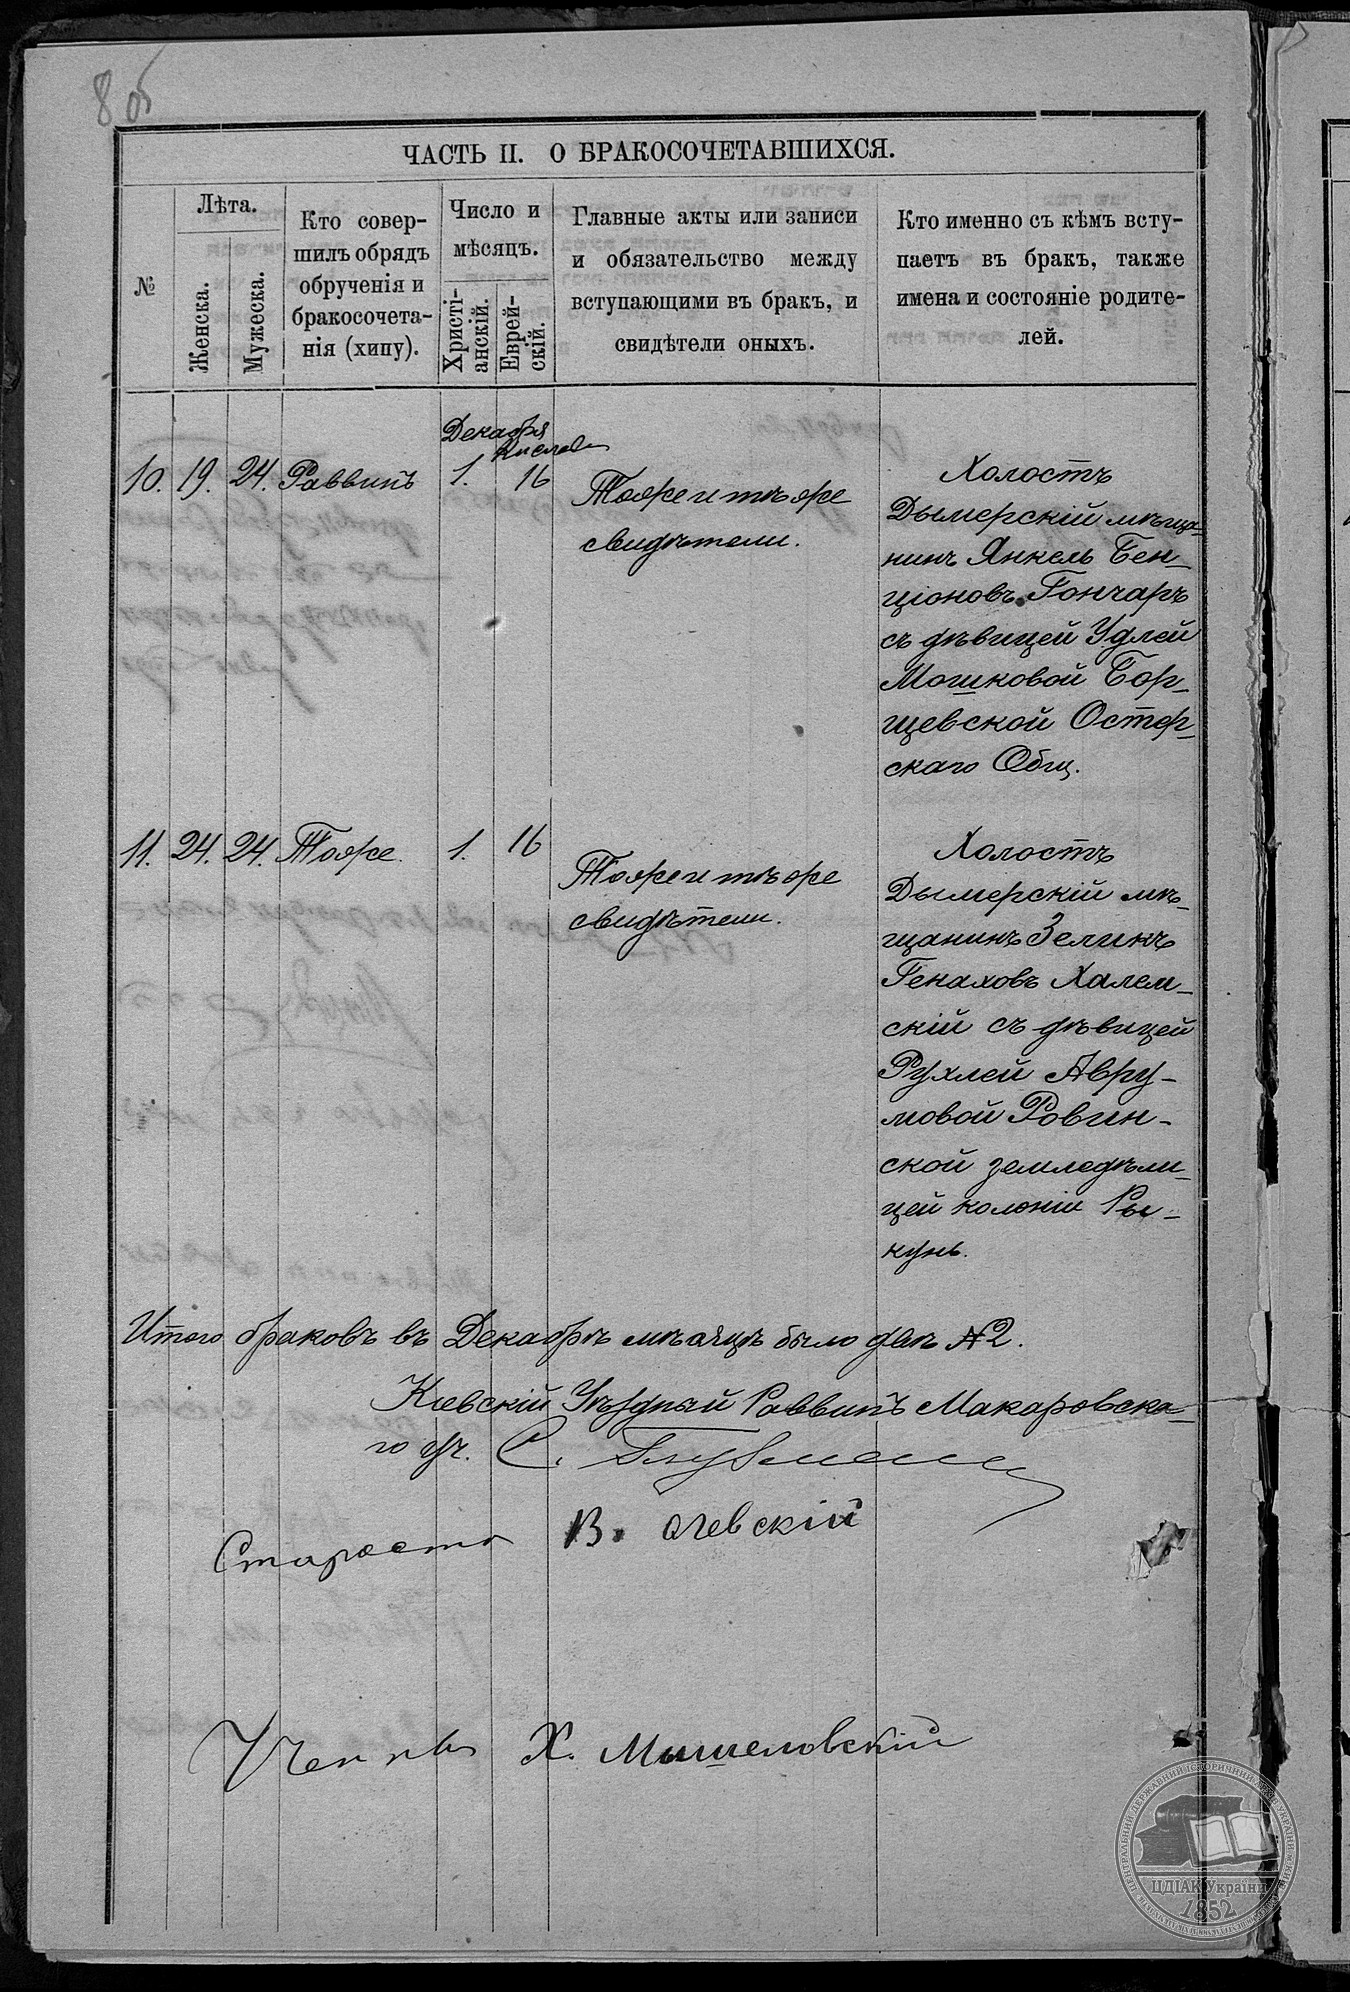 8 об
ЧАСТЬ II. О БРАКОСОЧЕТАВШИХСЯ.
№
Лѣта.
Женска.
Мужеска.
Кто совер-
шилъ обрядъ
обрученія и
бракосочета-
нія (хипу).
Число и
мѣсяцъ.
Христі-
анскій.
Еврей-
скій.
Главные акты или записи
и обязательство между
вступающими въ бракъ, и
свидѣтели оныхъ.
Кто именно съ кѣмъ всту-
паетъ въ бракъ, также
имена и состояніе родите-
лей.
Декабря
Кислев
10. 19. 24. Раввинъ 1. 16
Тоже и тѣ же
свидѣтели.
Холостъ
Дымерскій мѣща-
нинъ Янкель Бен-
ціоновъ Гончаръ
съ дѣвицей Удлей
Мошковой Бор-
щевской Остер-
скаго Общ.
11. 24. 24. Тоже. 1. 16
Тоже и тѣ же
свидѣтели.
Холостъ
Дымерскій мѣ-
щанинъ Зеликъ
Генаховъ Халем-
скій съ дѣвицей
Рухлей Авру-
мовой Ровин-
ской земледѣли-
цей колоніи Ры-
кунь.
Итого браковъ въ Декабрѣ мѣсяцѣ было двѣ №2.
Кіевскій Уѣздный Раввинъ Макаровска-
го уч. С.
Староста В.
Учен Х. Мышеловскій
ЦЕНТРАЛЬНИЙ ДЕРЖАВНИЙ ІСТОРИЧНИЙ АРХІВ УКРАЇНИ
ЦДІАК України
1852